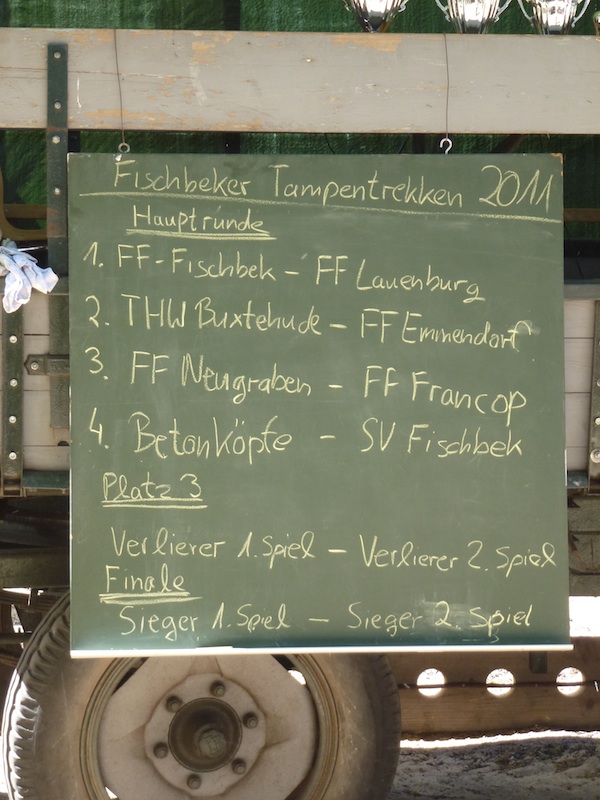 Fischbeker Tampentrekken 2011
Hauptrunde
1. FF-Fischbek - FF Lauenburg
2. THW Buxtehude - FF Emmendorf
3. FF Neugraben - FF Francop
4. Betonköpfe - SV Fischbek
Platz 3
Verlierer 1. Spiel - Verlierer 2. Spiel
Finale
Sieger 1. Spiel - Sieger 2. Spiel